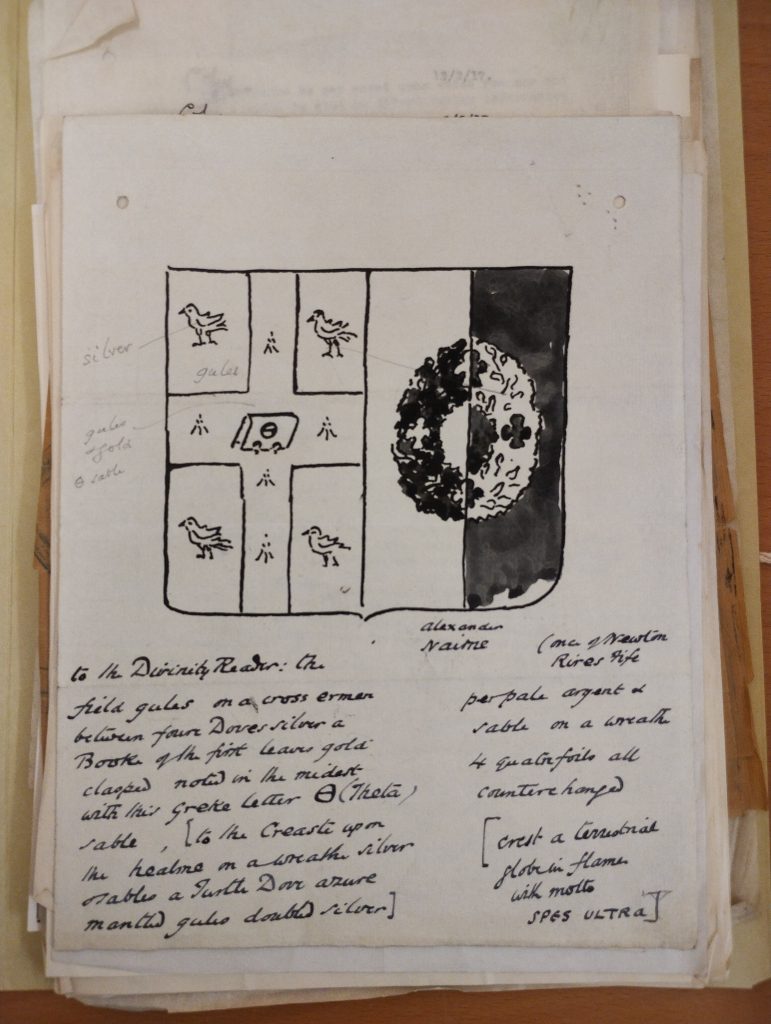 18/3/37.
silver
gules
gules
& gold
Θ sable
Θ
Alexander
Nairne
(one of Newton
Rires Fife
to the Divinity Reader: the
field gules on a cross ermen
between foure Doves silver a
Booke of the first leaves gold
clasped noted in the midest
with this Greke letter Θ (Theta)
sable, [to the Creaste upon
the healme on a wreathe silver
& sables a Turtle Dove azure
mantled gules doubled silver]
per pale argent &
sable on a wreathe
4 quatrefoils all
counterchanged
[crest a terrestrial
globe in flame
with motto
SPES ULTRA]